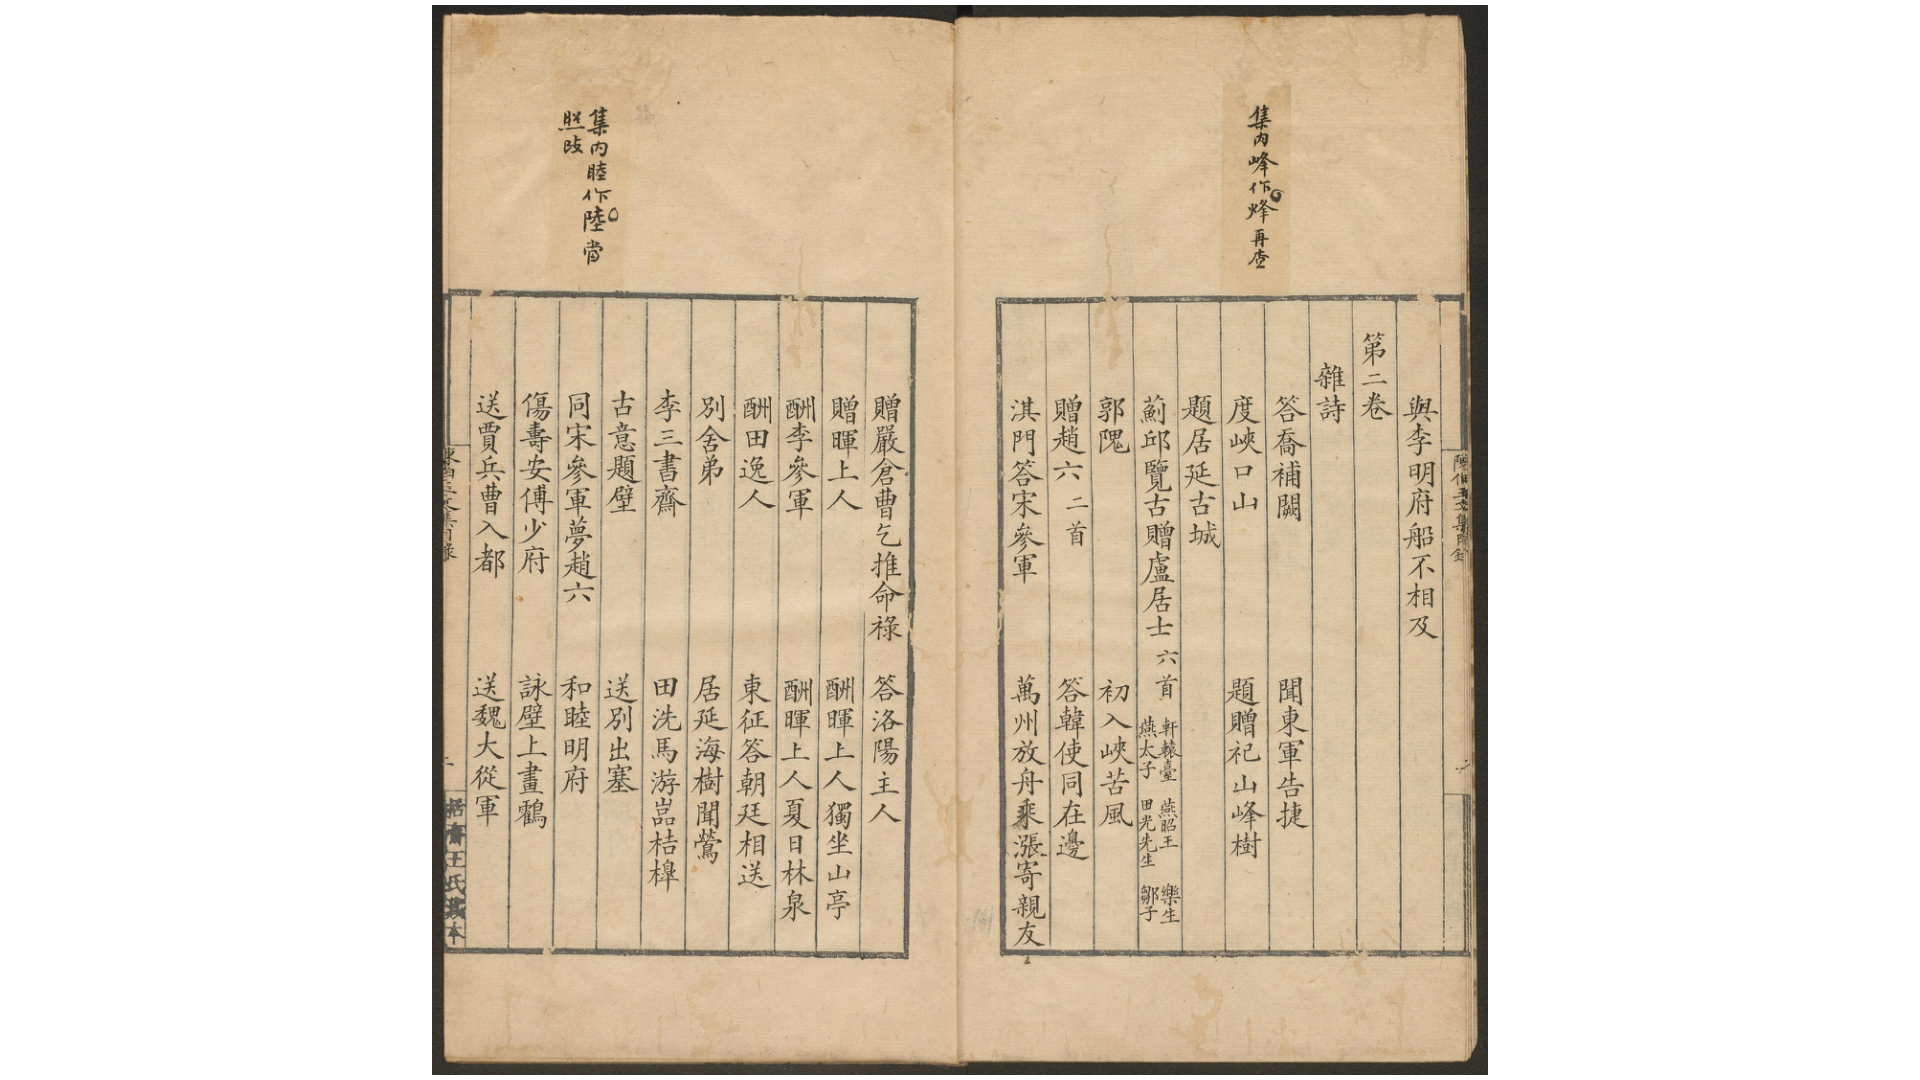 集内峰作烽再查
與李明府船不相及
第二卷
雜詩
答喬補闕
聞東軍告捷
度峽口山
題贈祀山峰樹
題居延古城
薊邱覽古贈盧居士 六首
軒轅臺 燕昭王 樂生
燕太子 田光先生 鄒子
郭隗
初入峽苦風
贈趙六 二首
答韓使同在邊
淇門答宋參軍
萬州放舟乘漲寄親友
集内睦作陸當
照改
贈嚴倉曹乞推命祿
答洛陽主人
贈暉上人
酬暉上人獨坐山亭
酬李參軍
酬暉上人夏日林泉
酬田逸人
東征答朝廷相送
別舍弟
居延海樹聞鶯
李三書齋
田洗馬游嵓桔槹
古意題壁
送別出塞
同宋參軍夢趙六
和睦明府
傷壽安傅少府
詠壁上畫鸖
送賈兵曹入都
送魏大從軍
王氏藏本